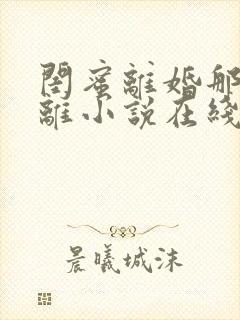 閨蜜離婚
離小說在綫
晨曦城沫